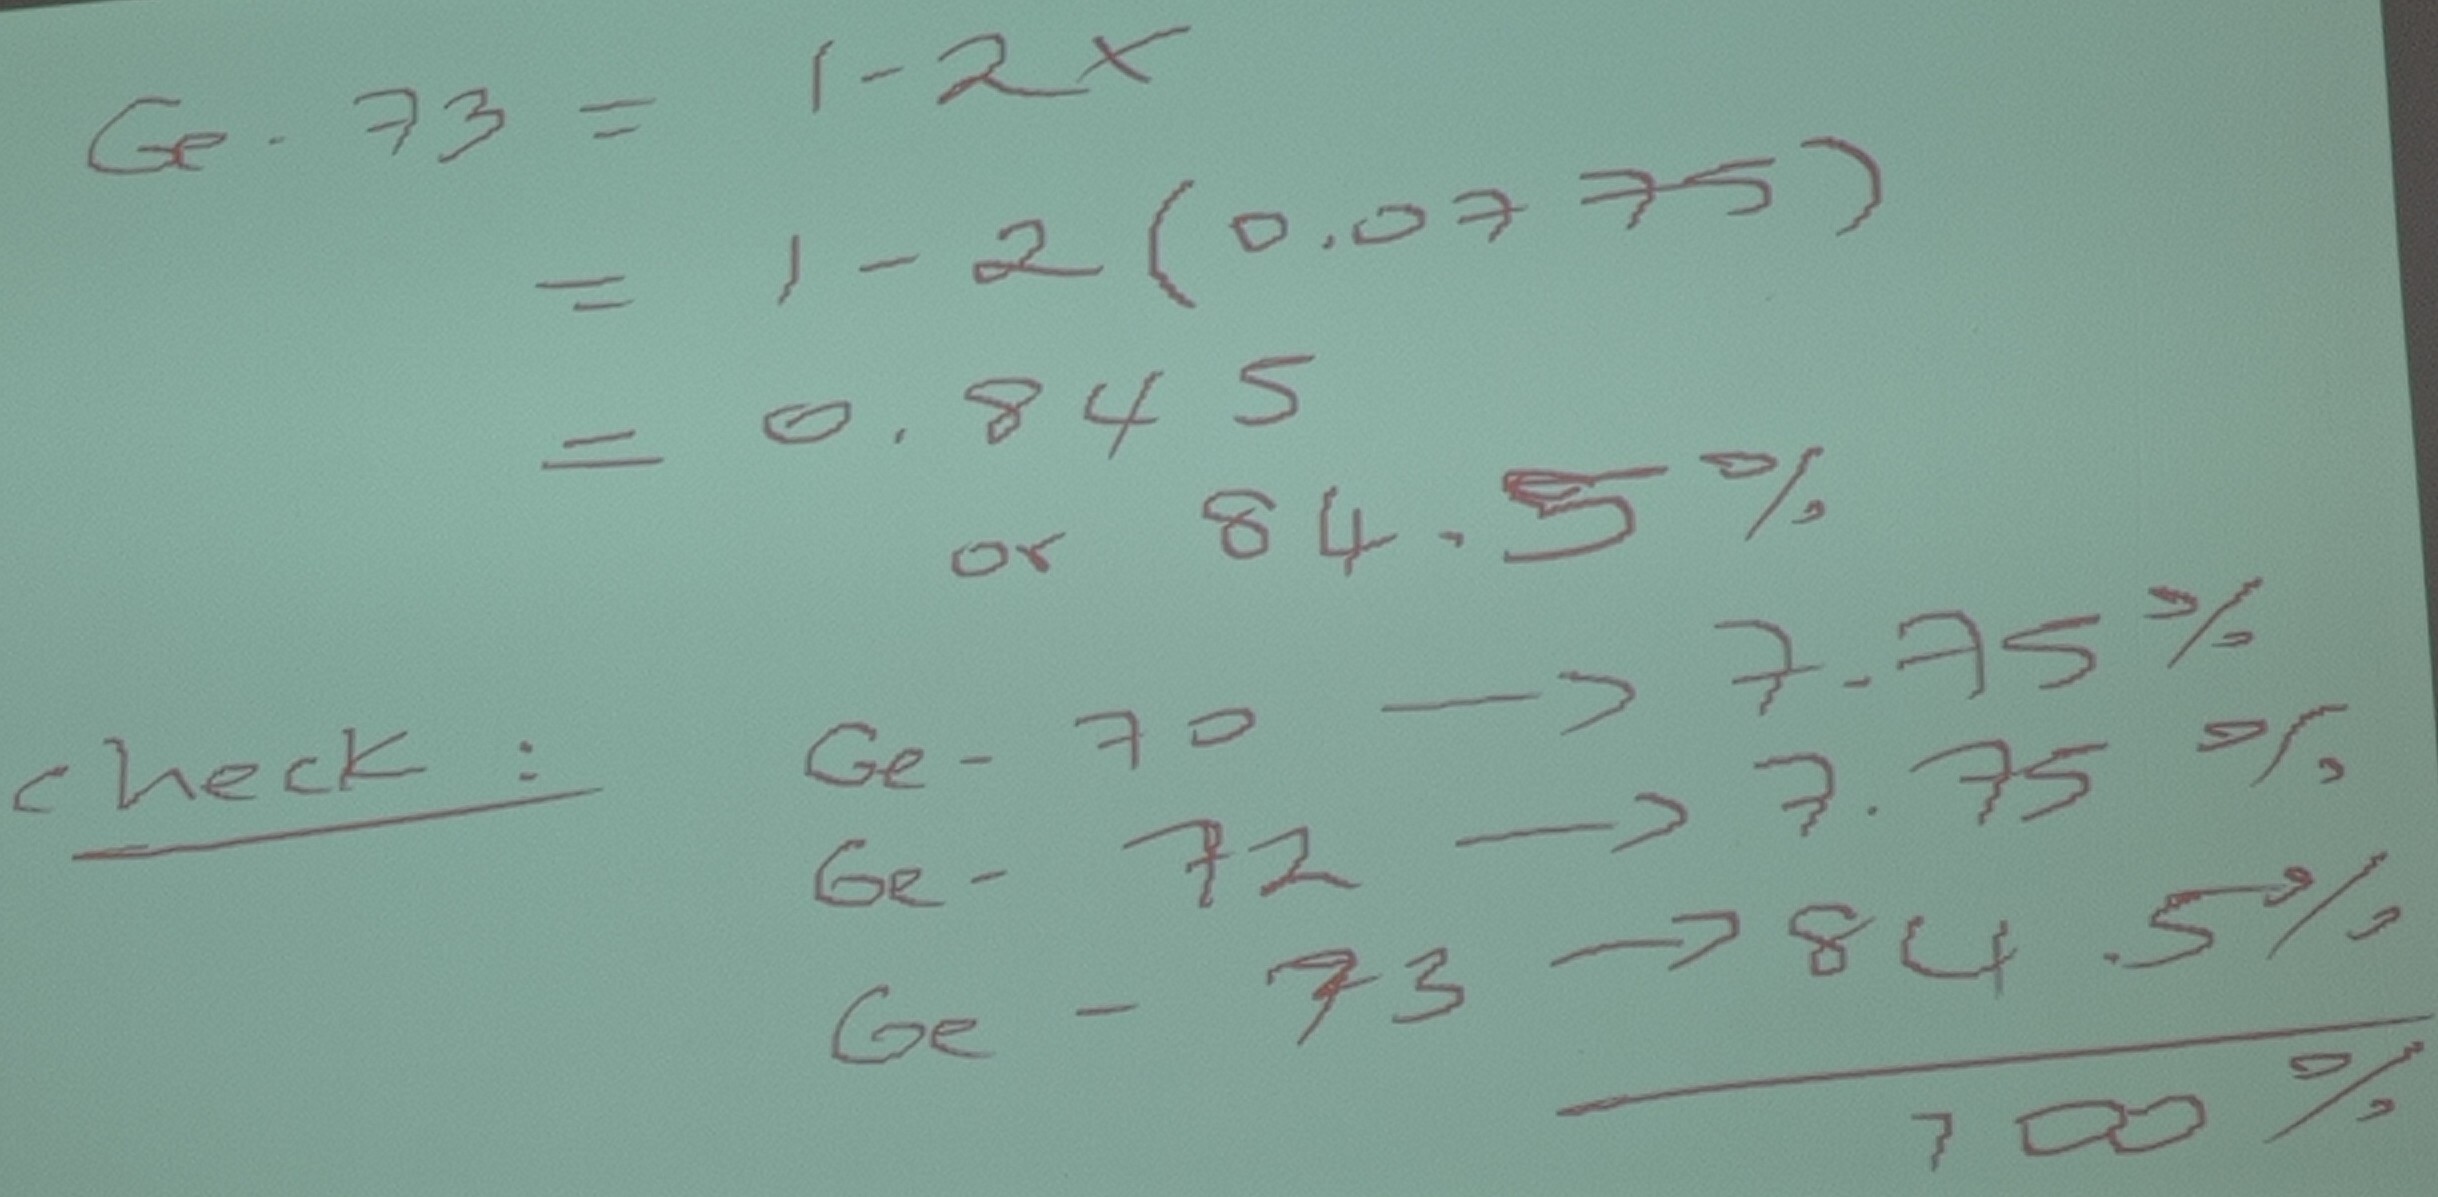 Ge. 73 = 1 - 2x
= 1 - 2 (0.0775)
= 0.845
or 84.5%
check : Ge - 70 → 7.75%
Ge - 72 → 7.75%
Ge - 73 → 84.5%
100%